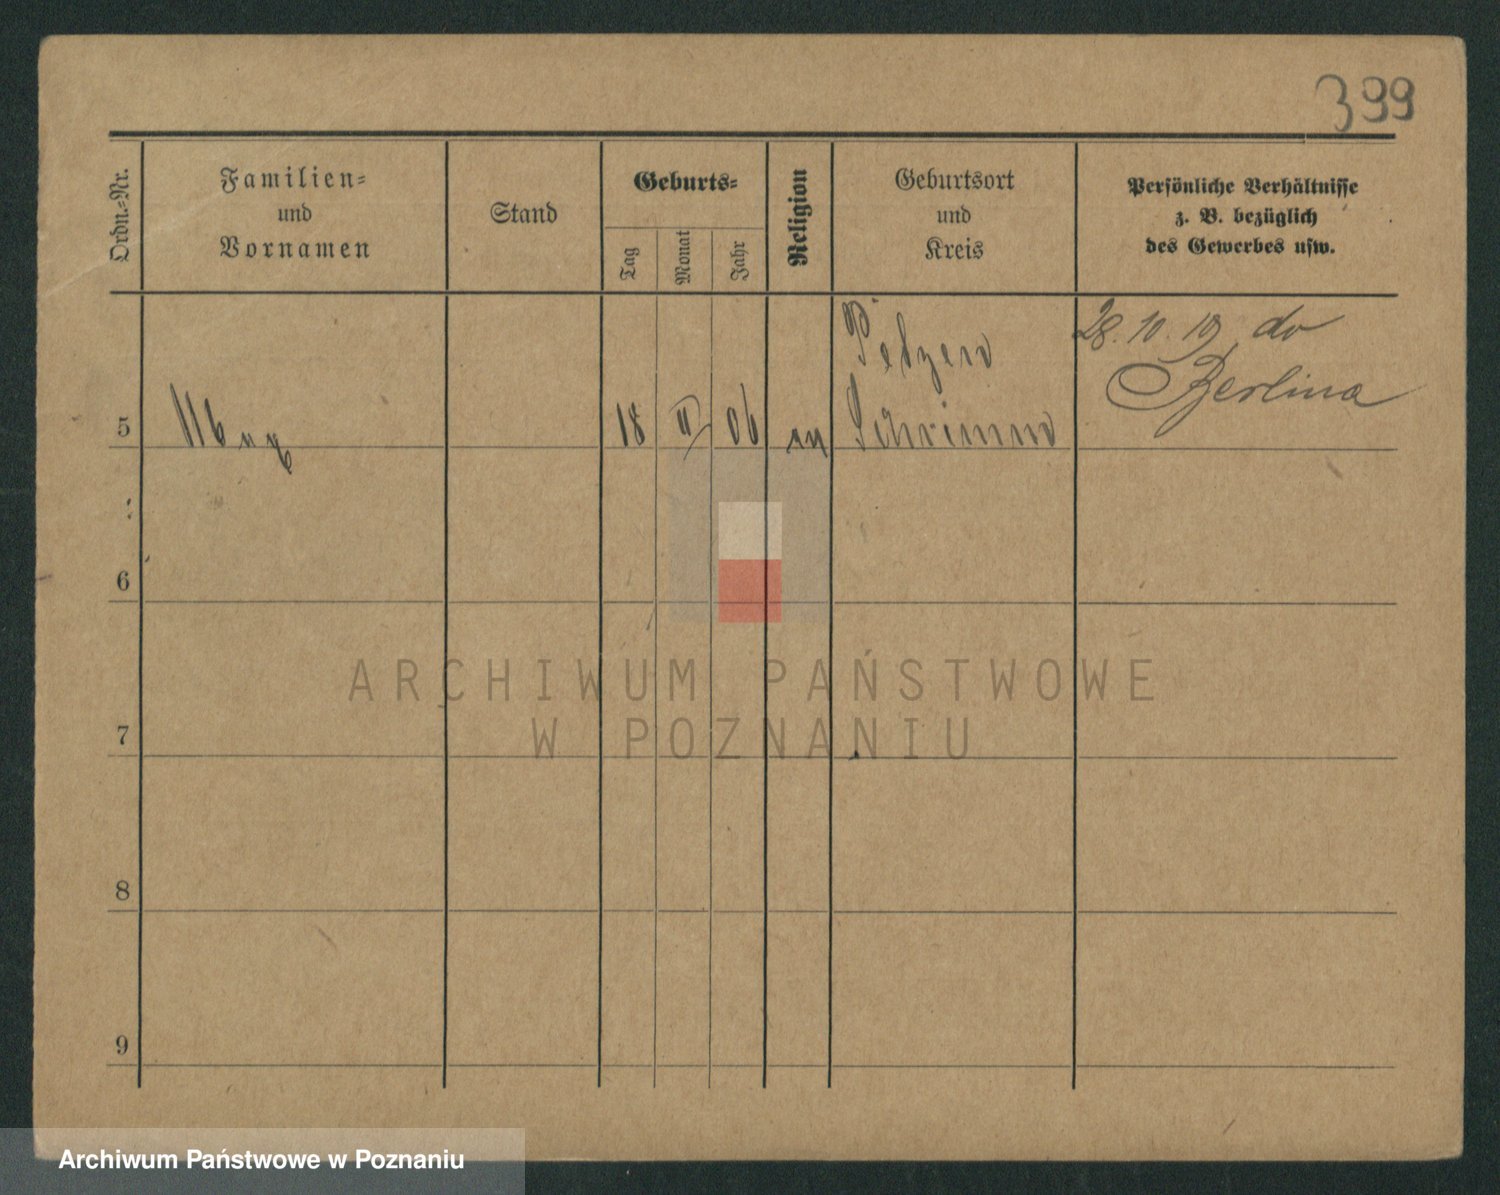 399
Ordn.-Nr.
Familien-
und
Vornamen
Stand
Geburts-
Tag
Monat
Jahr
Religion
Geburtsort
und
Kreis
Persönliche Verhältnisse
z. B. bezüglich
des Gewerbes usw.
5
18
II
06
Schrimm
28. 10. 19 do
Berlina
6
7
8
9
ARCHIWUM PAŃSTWOWE
W POZNANIU
Archiwum Państwowe w Poznaniu